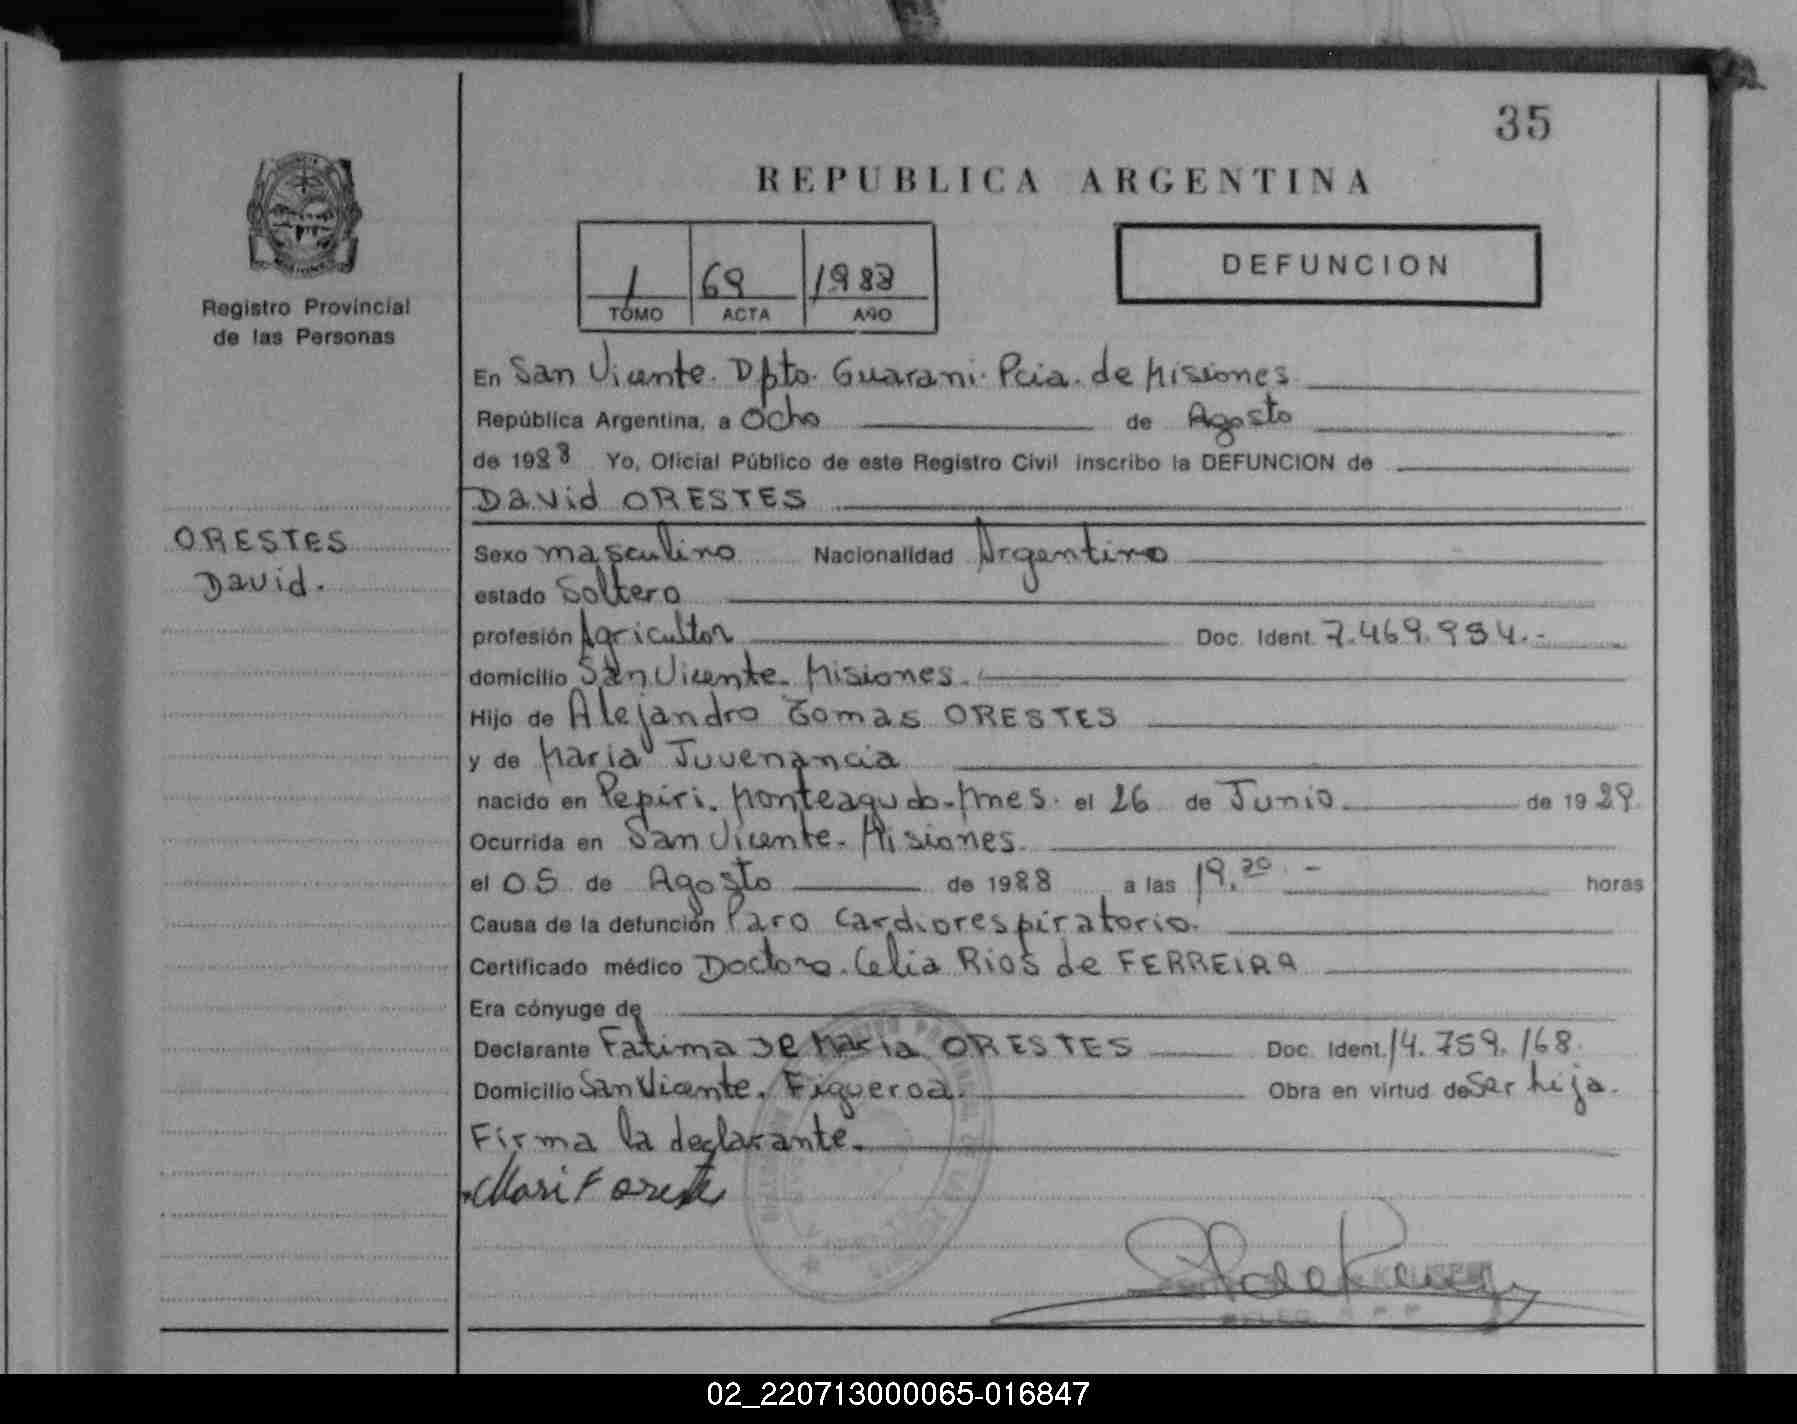 35
REPUBLICA ARGENTINA
Registro Provincial
de las Personas
1 69 1988
TOMO ACTA AÑO
DEFUNCION
En San Vicente. Dpto. Guarani. Pcia. de Misiones
República Argentina, a Ocho de Agosto
de 1988 Yo, Oficial Público de este Registro Civil inscribo la DEFUNCION de
David ORESTES
ORESTES
David.
Sexo masculino Nacionalidad Argentino
estado Soltero
profesión Agricultor Doc. Ident. 7.469.954.-
domicilio San Vicente. Misiones.
Hijo de Alejandro Tomas ORESTES
y de Maria Juvenancia
nacido en Pepiri. Monteagudo-Mnes. el 26 de Junio de 1929.
Ocurrida en San Vicente. Misiones.
el 05 de Agosto de 1988 a las 19.30.- horas
Causa de la defunción Paro Cardiorespiratorio.
Certificado médico Doctora. Celia Rios de FERREIRA
Era cónyuge de
Declarante Fatima de Maria ORESTES Doc. Ident. 14.759.168.
Domicilio San Vicente. Figueroa. Obra en virtud de Ser hija.
Firma la declarante.
02_220713000065-016847